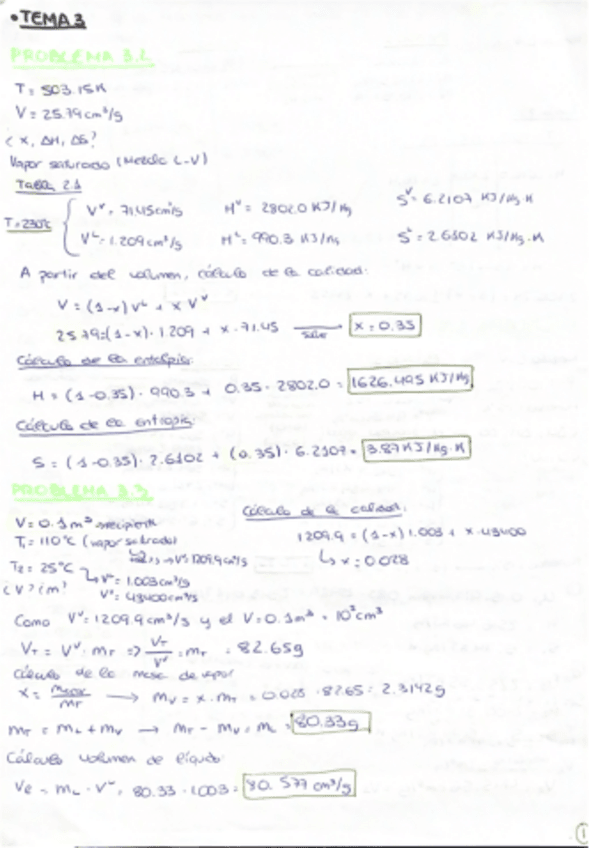 • TEMA 3
PROBLEMA 3.2
T = 503.15K
V = 25.79 cm³/g
¿ x, ΔH, ΔS?
Vapor saturado (Mezcla L-V)
Tabla 2.1
T=230°C { Vᵛ = 71.45 cm³/s Hᵛ = 2802.0 KJ/Kg Sᵛ = 6.2107 KJ/Kg K
Vᴸ = 1.209 cm³/s Hᴸ = 990.3 KJ/Kg Sᴸ = 2.6102 KJ/Kg.K
A partir del volumen, cálculo de la calidad:
V = (1-x) Vᴸ + x Vᵛ
25.79 = (1-x) · 1.209 + x · 71.45 ⟶ x = 0.35
Cálculo de la entalpía:
H = (1-0.35) · 990.3 + 0.35 · 2802.0 = 1626.495 KJ/Kg
Cálculo de la entropía:
S = (1-0.35) · 2.6102 + (0.35) · 6.2107 = 3.87 KJ/Kg.K
PROBLEMA 3.3
V = 0.1 m³ recipiente
T₁ = 110°C (vapor saturado)
→ Vᵛ 1209.9 cm³/s
T₂ = 25°C ↳ Vᴸ = 1.003 cm³/g
¿V? ¿m? Vᵛ = 43400 cm³/s
Cálculo de la calidad:
1209.9 = (1-x) 1.003 + x · 43400
↳ x = 0.028
Como Vᵛ = 1209.9 cm³/s y el V = 0.1 m³ = 10⁵ cm³
V_T = Vᵛ · m_T => V_T/Vᵛ = m_T = 82.65g
Cálculo de la masa de vapor
x = m_vapor/m_T ⟶ m_V = x · m_T = 0.028 · 82.65 = 2.3142g
m_T = m_L + m_V → m_T - m_V = m_L = 80.33g
Cálculo volumen de líquido:
V_e = m_L · Vᴸ = 80.33 · 1.003 = 80.577 cm³/g
1